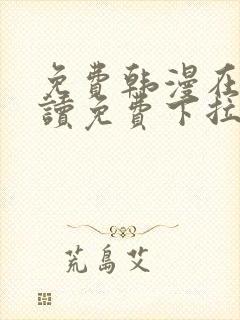 免費韩漫在
讀免費下拉
荒島艾